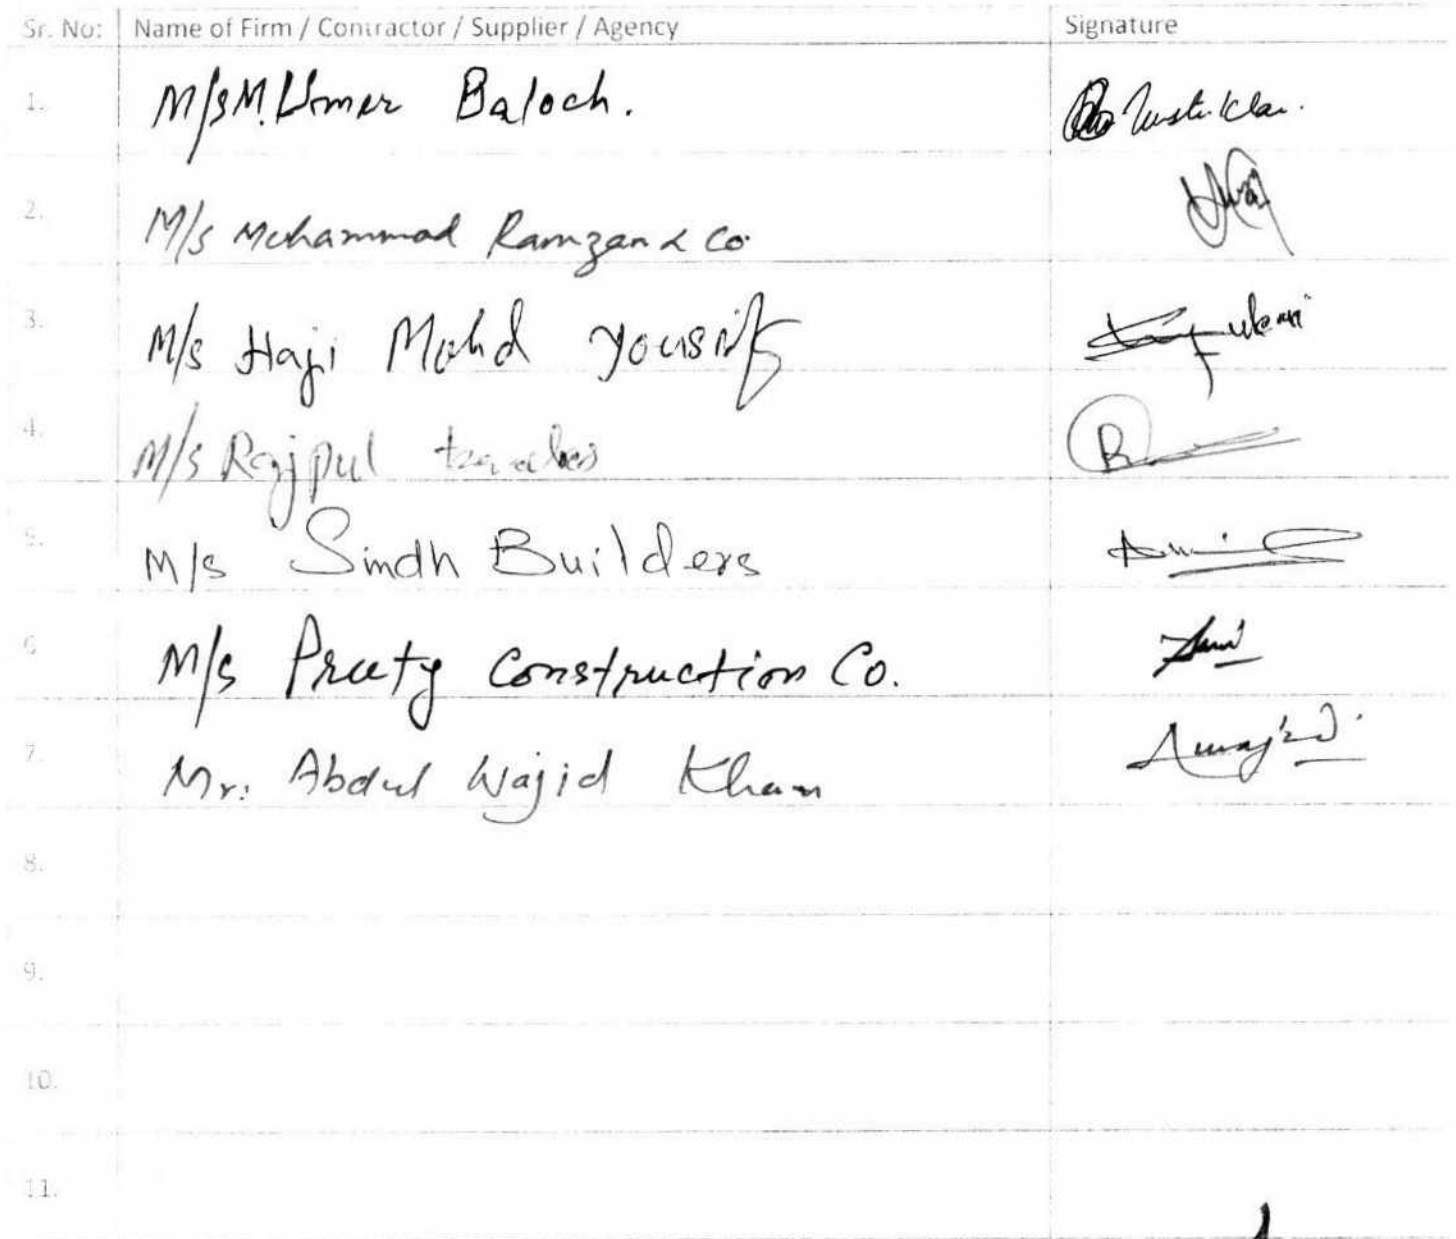 Sr. No: Name of Firm / Contractor / Supplier / Agency Signature
1. M/s M. Umer Baloch.
2. M/s Muhammad Ramzan & Co
3. M/s Haji Mohd Yousif
4. M/s Rajput traders
5. M/s Sindh Builders
6 M/s Preety Construction Co.
7. Mr. Abdul Wajid Khan
8.
9.
10.
11.